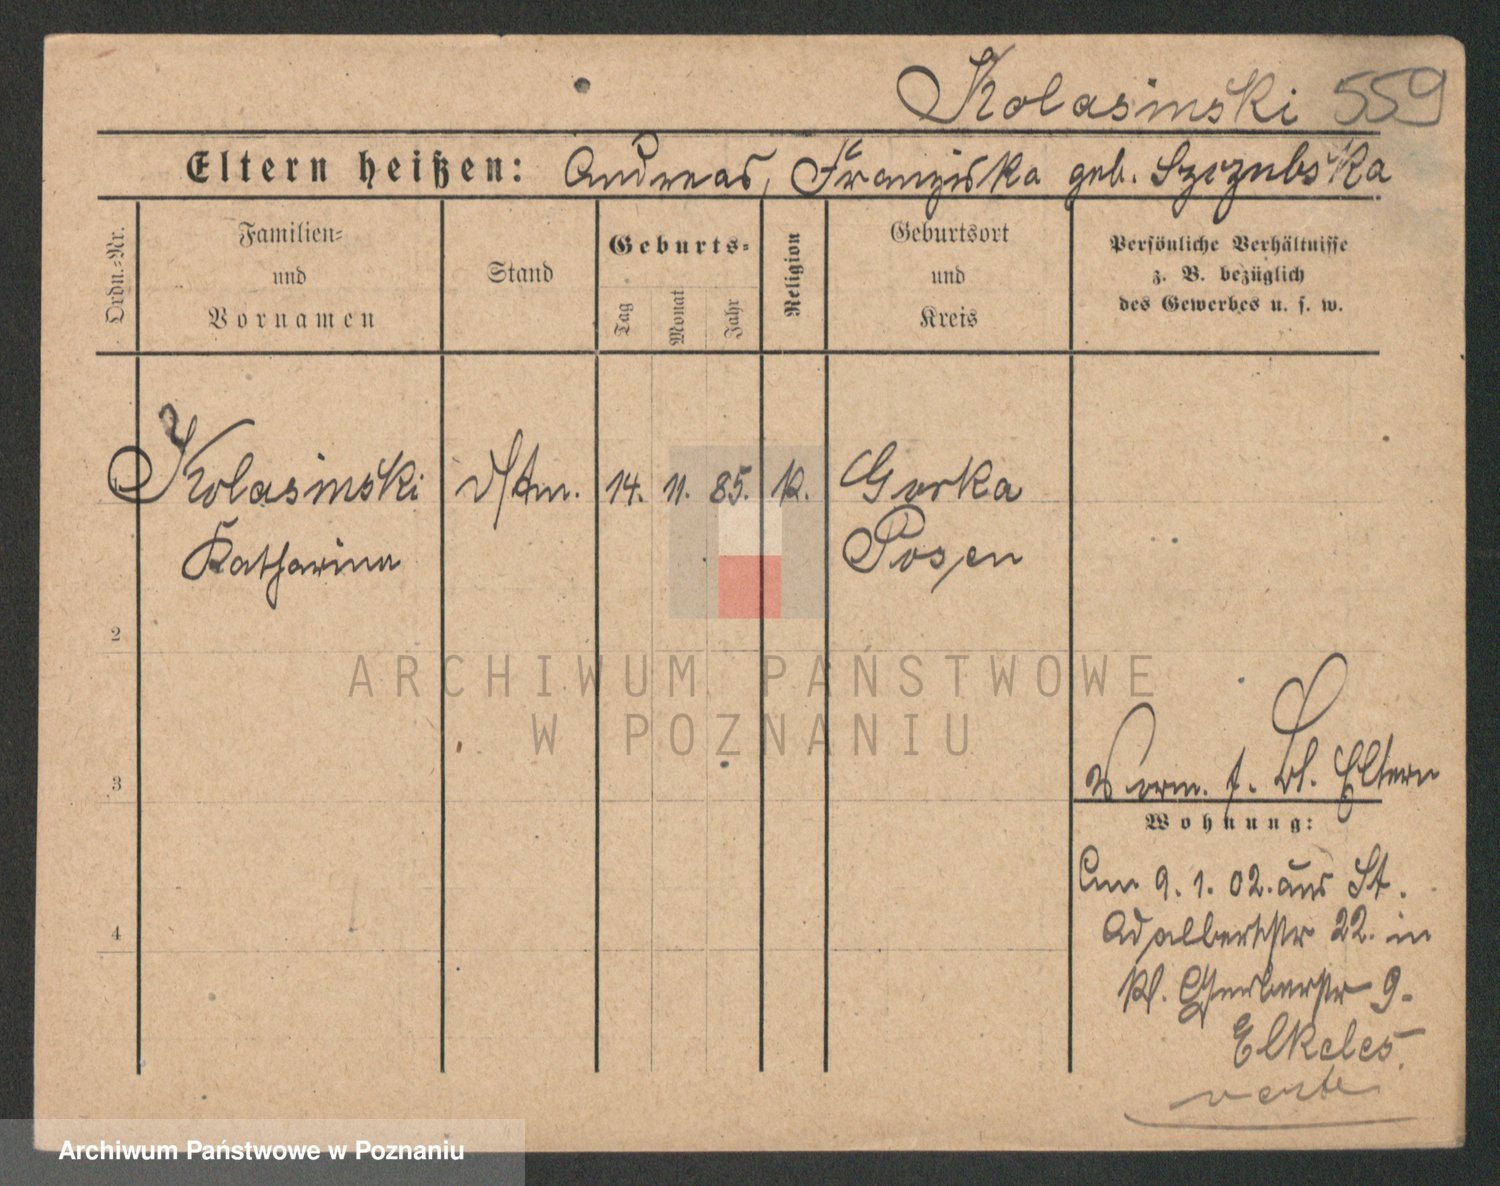 Kolasinski 559
Eltern heißen: Andreas, Franziska geb. Szczubska
Ordn.-Nr.
Familien-
und
Vornamen
Stand
Geburts-
Tag
Monat
Jahr
Religion
Geburtsort
und
Kreis
Persönliche Verhältnisse
z. B. bezüglich
des Gewerbes u. s. w.
Kolasinski 14. 11. 85. k. Gorka
Katharina Posen
2
3
4
Vorm. f. Bl. Eltern
Wohnung:
Am 9. 1. 02. aus St.
Adalbertstr 22. in
Kl. Gerberstr 9.
Elkeles.
verte
ARCHIWUM PAŃSTWOWE
W POZNANIU
Archiwum Państwowe w Poznaniu